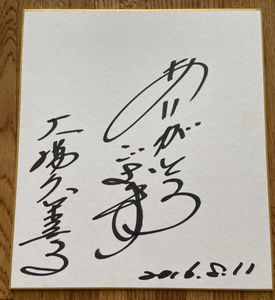 ありがとう
ございます
工藤久美子
2016.5.11